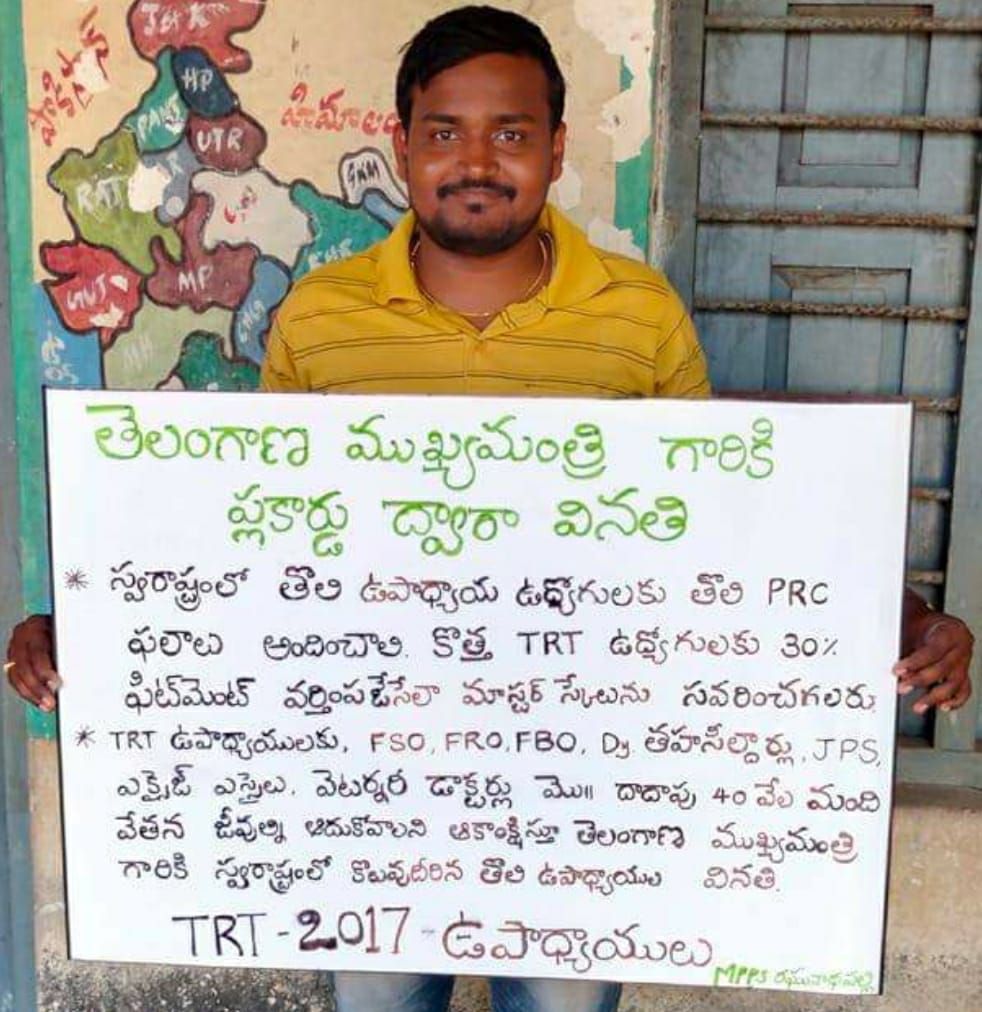 J&K
పాకిస్తాన్
HP
హిమాలయ
PANJ
UTR
RAT
SKM
U.P
BHR
MP
GUJ
CHG
MH
తెలంగాణ ముఖ్యమంత్రి గారికి
ప్లకార్డు ద్వారా వినతి
* స్వరాష్ట్రంలో తొలి ఉపాధ్యాయ ఉద్యోగులకు తొలి PRC
ఫలాలు అందించాలి. కొత్త TRT ఉద్యోగులకు 30%
ఫిట్‌మెంట్ వర్తింపజేసేలా మాస్టర్ స్కేలును సవరించగలరు.
* TRT ఉపాధ్యాయులకు, FSO, FRO, FBO, Dy తహసీల్దార్లు, JPS,
ఎక్సైజ్ ఎస్సైలు, వెటర్నరీ డాక్టర్లు మొ॥ దాదాపు 40 వేల మంది
వేతన జీవుల్ని ఆదుకోవాలని ఆకాంక్షిస్తూ తెలంగాణ ముఖ్యమంత్రి
గారికి స్వరాష్ట్రంలో కొలువుదీరిన తొలి ఉపాధ్యాయుల వినతి.
TRT - 2017 - ఉపాధ్యాయులు
MPPS రఘునాథపల్లి